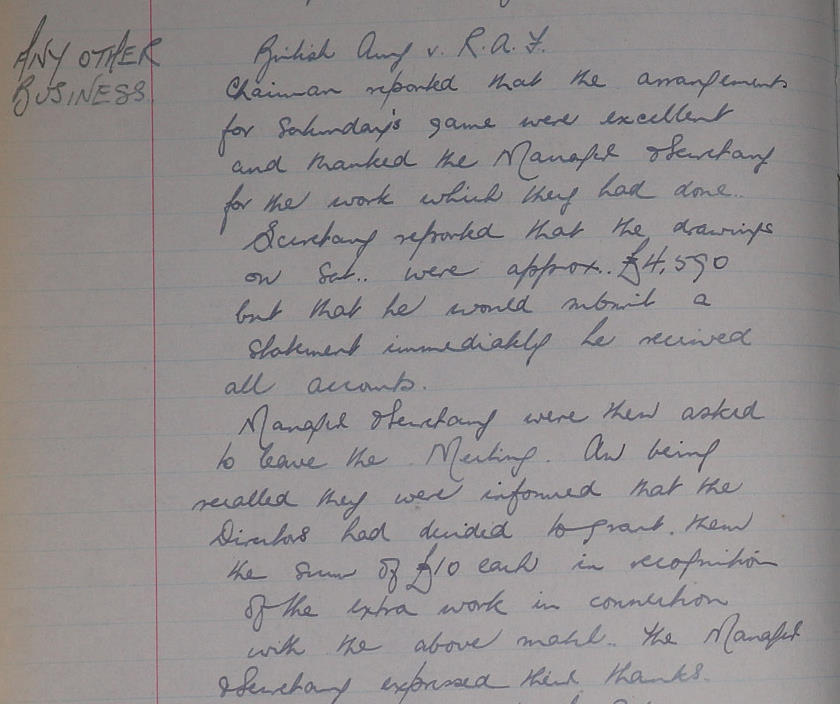 ANY OTHER
BUSINESS.
British Army v. R.A.F.
Chairman reported that the arrangements
for Saturday's game were excellent
and thanked the Manager & Secretary
for the work which they had done.
Secretary reported that the drawings
on Sat.. were approx.. £4,590
but that he would submit a
statement immediately he received
all accounts.
Manager & Secretary were then asked
to leave the Meeting. On being
recalled they were informed that the
Directors had decided to grant them
the sum of £10 each in recognition
of the extra work in connection
with the above match. The Manager
& Secretary expressed their thanks.